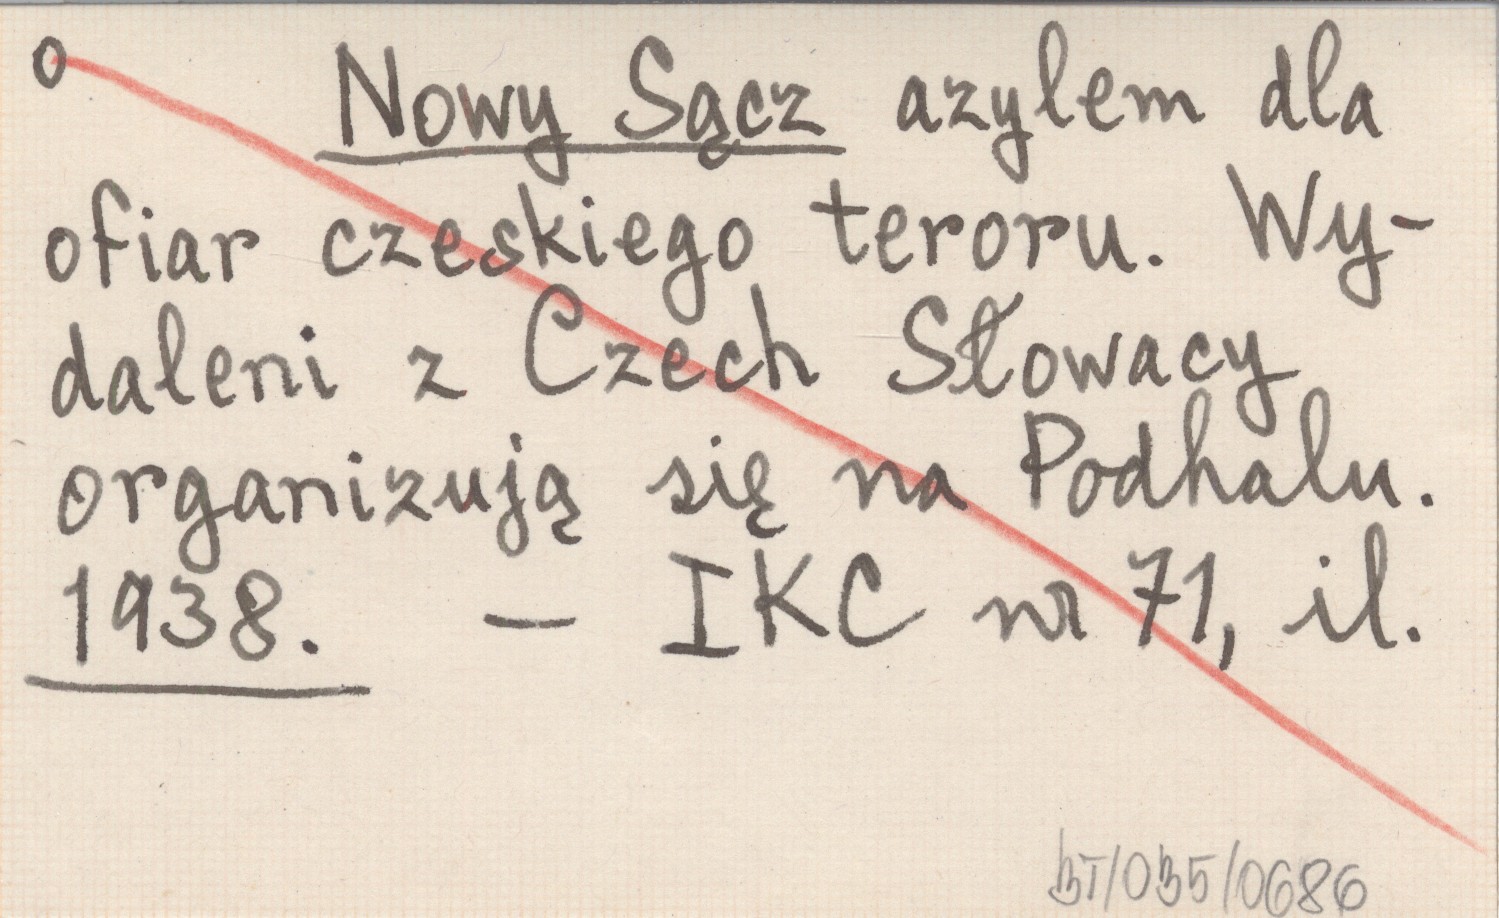 o Nowy Sącz azylem dla
ofiar czeskiego teroru. Wy-
daleni z Czech Słowacy
organizują się na Podhalu.
1938. — IKC nr 71, il.
BT/035/0686